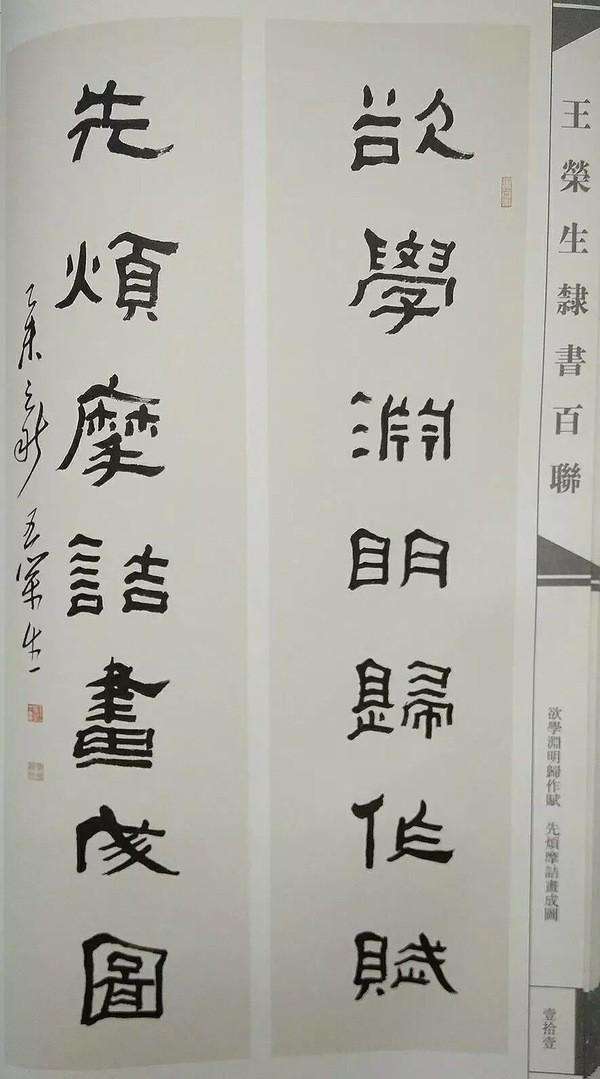 王榮生隸書百聯
欲學淵明歸作賦　先煩摩詰畫成圖
壹拾壹
欲學淵明歸作賦
先煩摩詰畫成圖
乙未之秋 王榮生